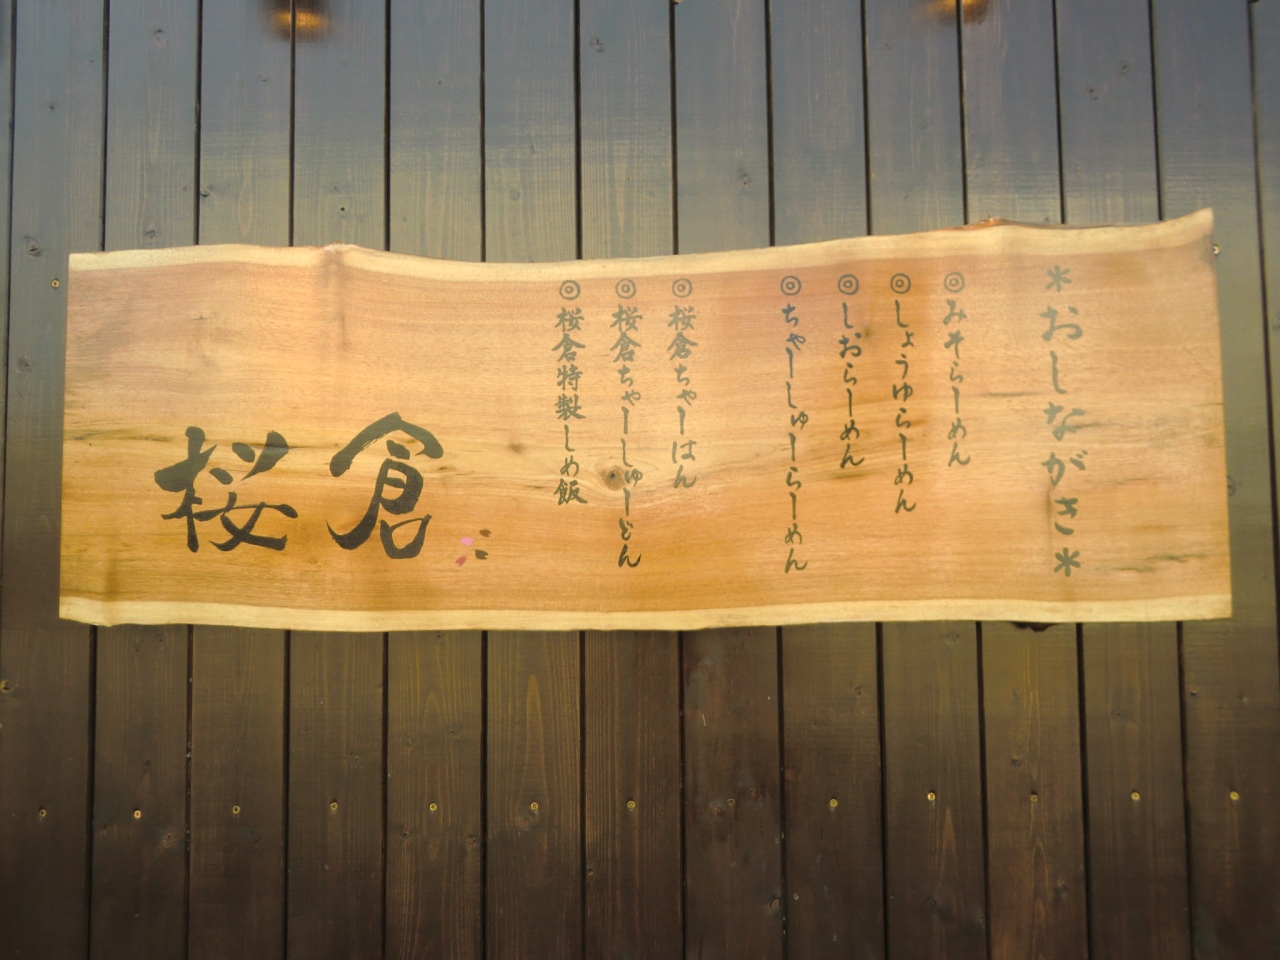 ＊おしながき＊
◎みそらーめん
◎しょうゆらーめん
◎しおらーめん
◎ちゃーしゅーらーめん
◎桜倉ちゃーはん
◎桜倉ちゃーしゅーどん
◎桜倉特製しめ飯
桜倉